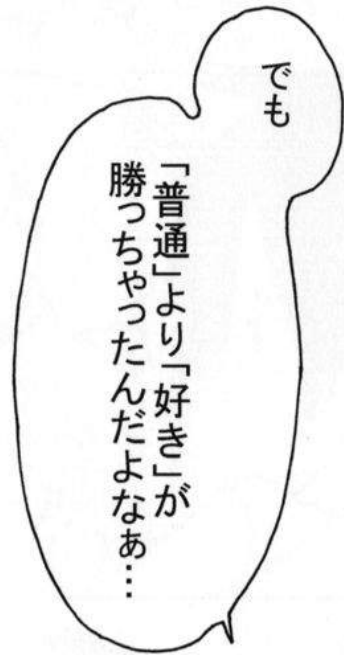 でも
「普通」より「好き」が
勝っちゃったんだよなぁ…